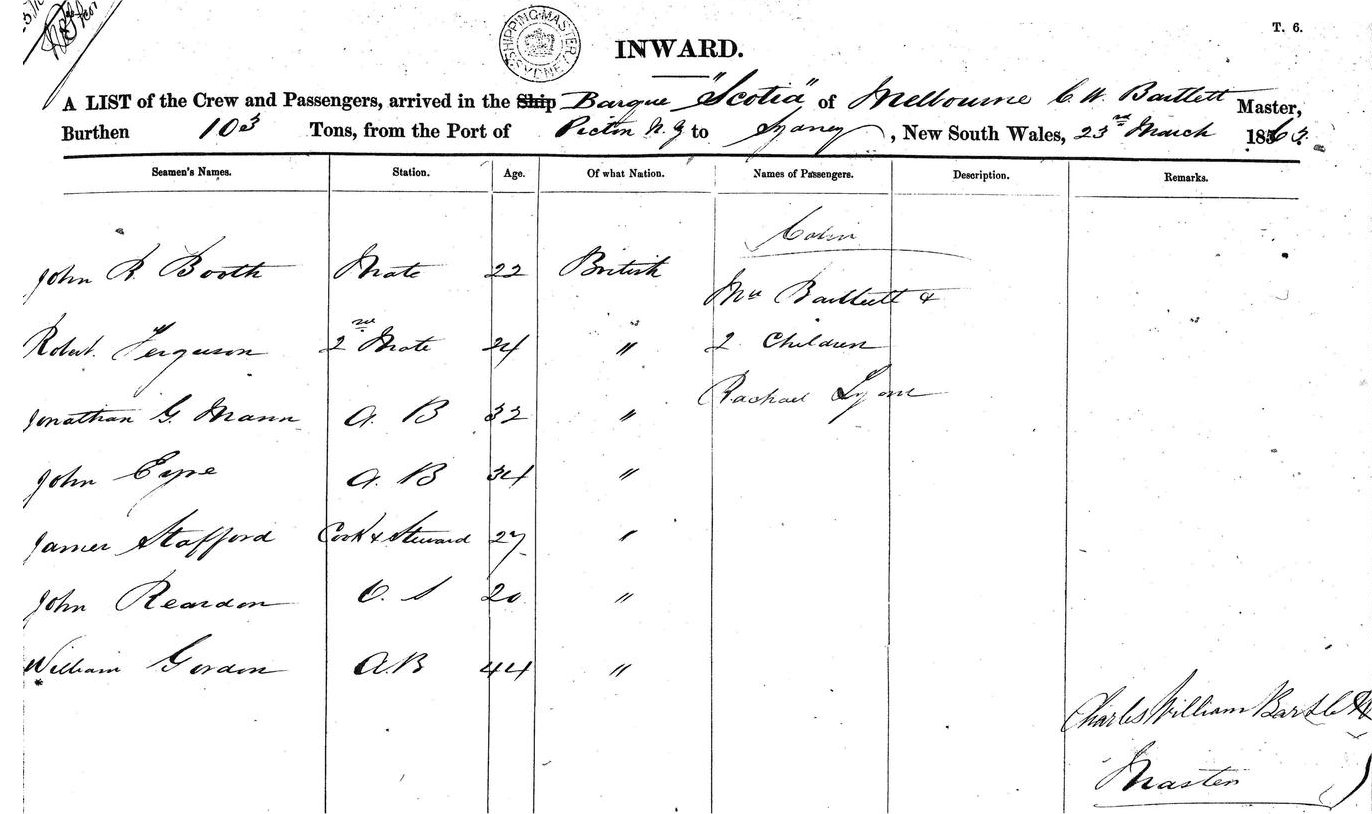 T. 6.
SHIPPING MASTER SYDNEY
INWARD.
A LIST of the Crew and Passengers, arrived in the Ship Barque "Scotia" of Melbourne C. W. Bartlett Master,
Burthen 103 Tons, from the Port of Picton N. Z to Sydney, New South Wales, 23rd March 1863
Seamen's Names. Station. Age. Of what Nation. Names of Passengers. Description. Remarks.
Cabin
John R. Booth Mate 22 British
Mrs Bartlett &
Robert Ferguson 2nd Mate 24 " 2 Children
Rachael Lyons
Jonathan G. Mann A. B 32 "
John Eype A. B 34 "
James Stafford Cook & Steward 27 "
John Reardon O. S 20 "
William Gordon A.B 44 "
Charles William Bartlett
Master